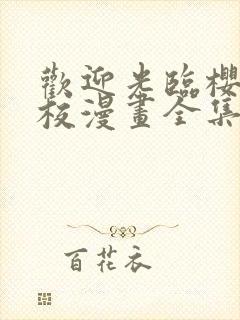 歡迎光臨櫻
校漫畫全集
百花衣